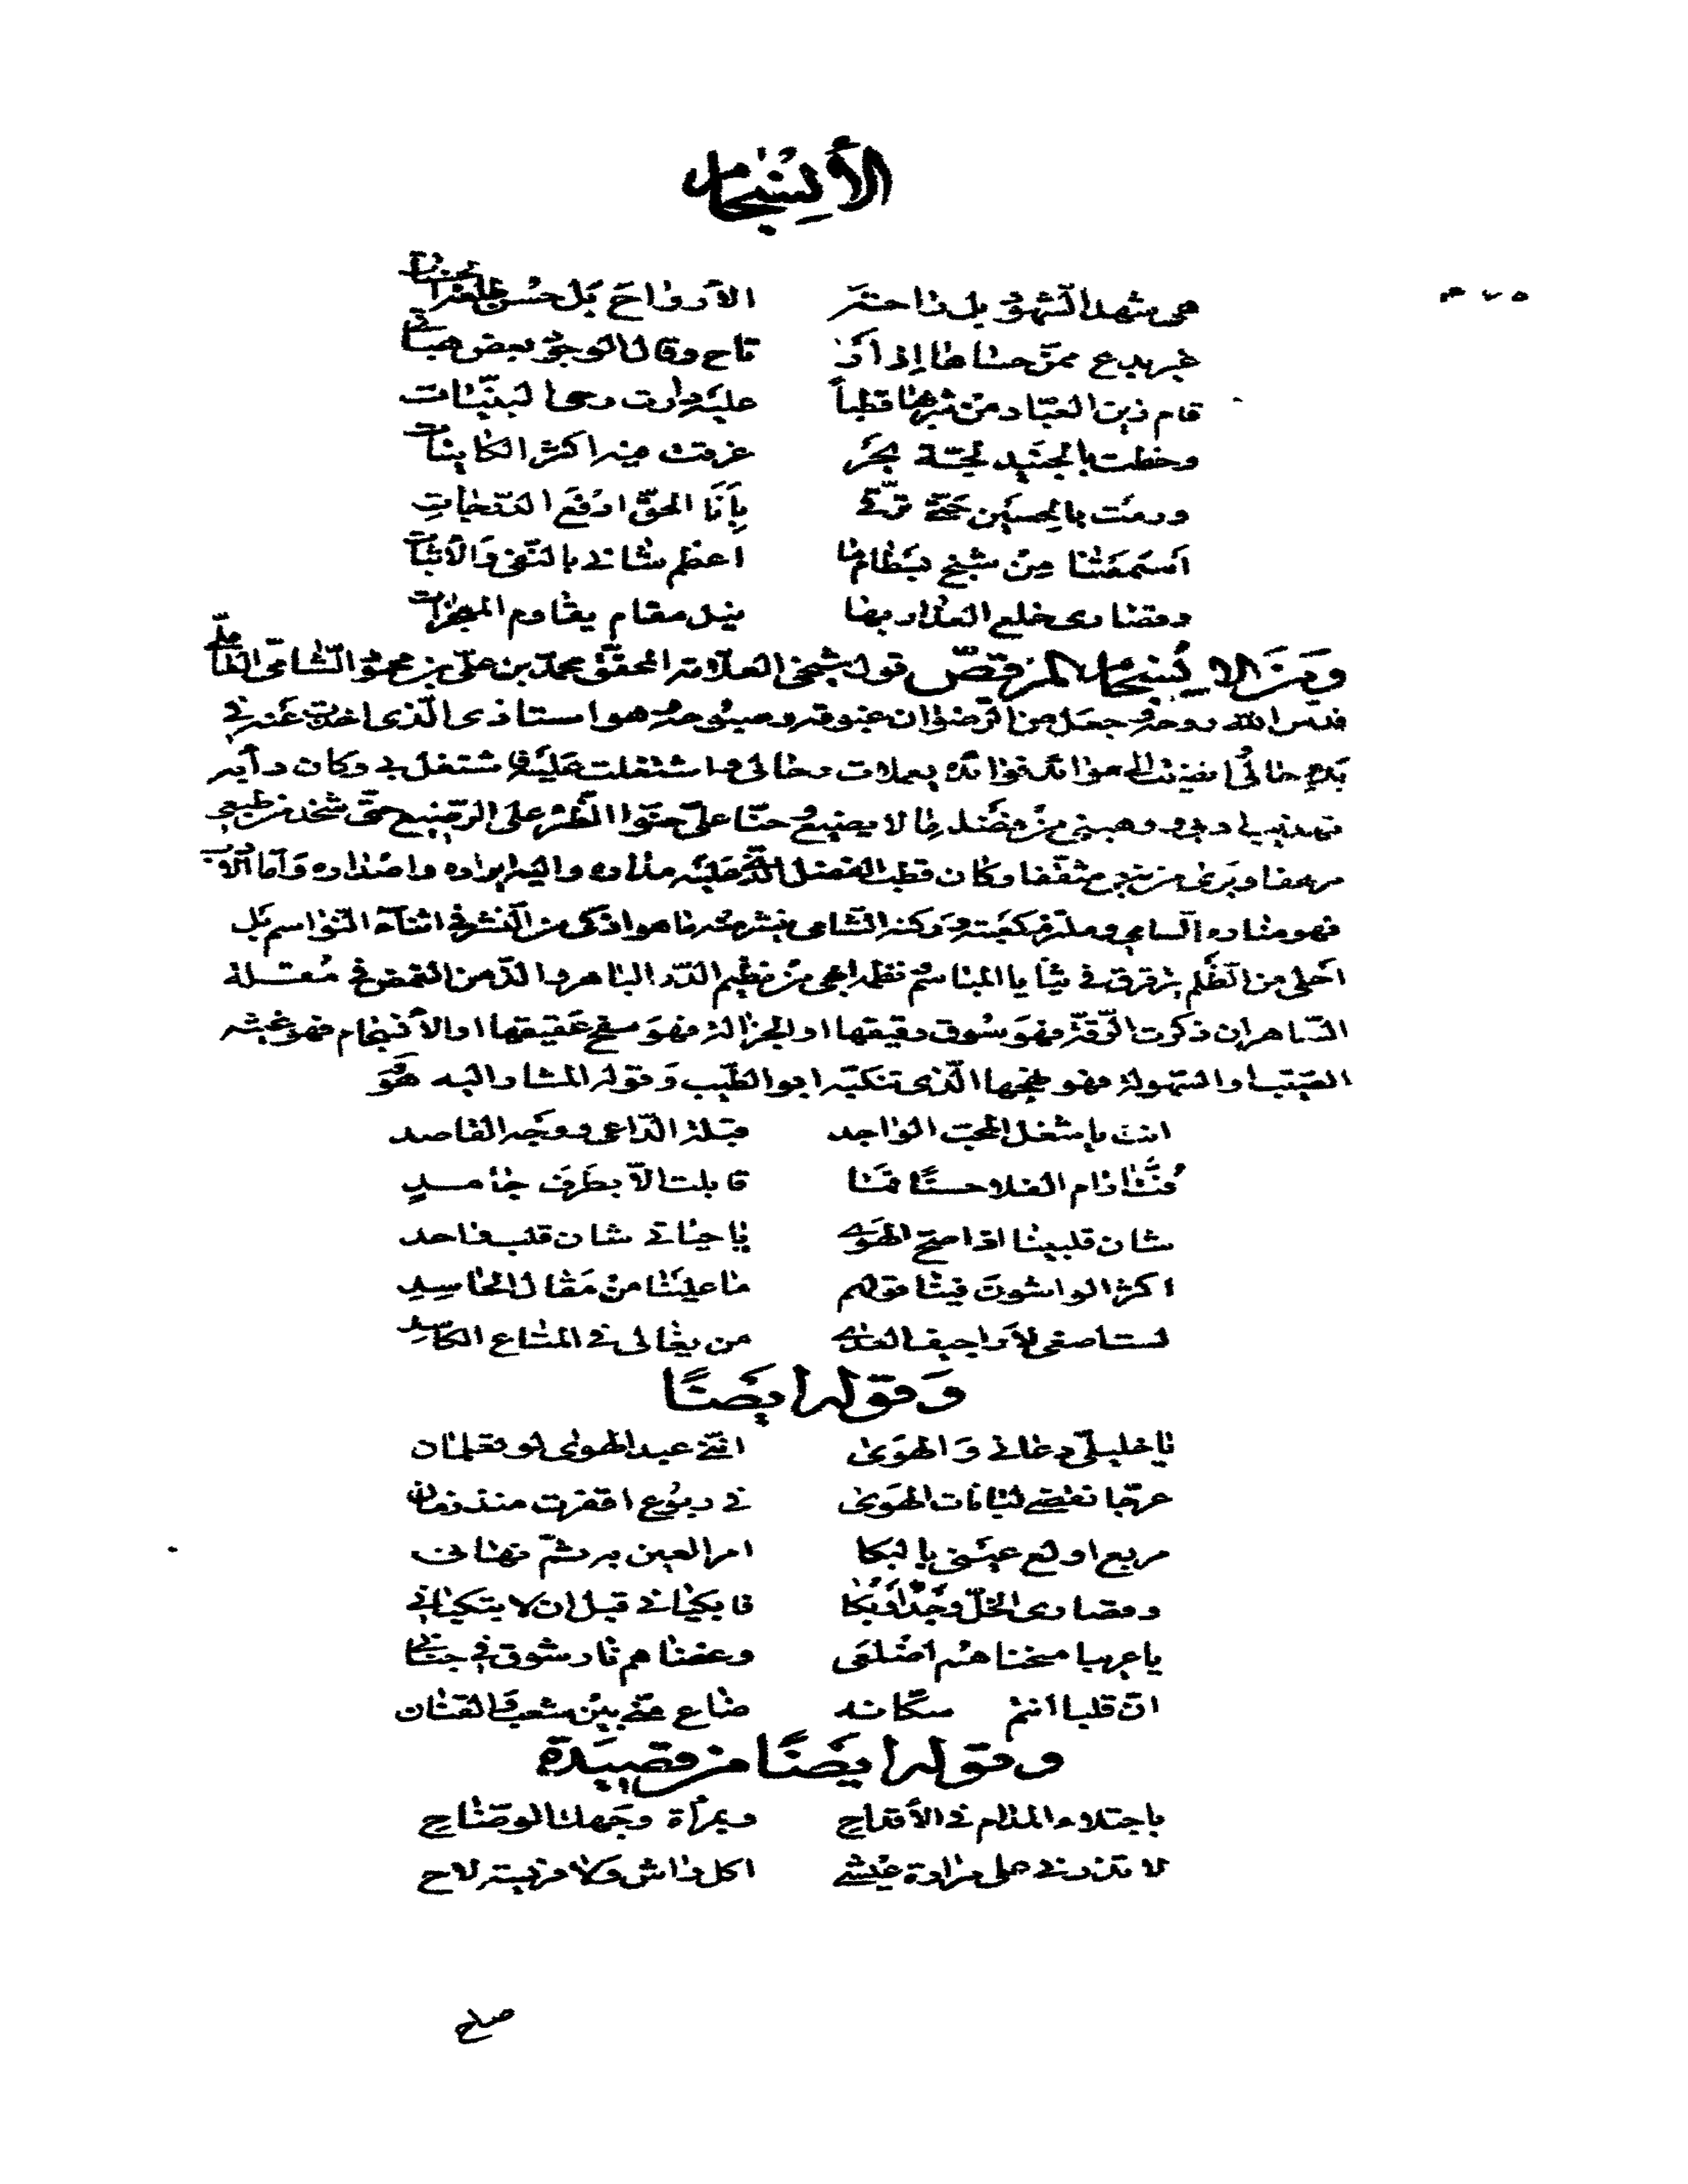 الأنسجام
هي شهد الشهود بل راحة الأرواح بل حسن طلعة
خبر بديع ممن حساها إذ أتى تاح وقال الوجود بعض هباتي
قام زين العباد من شربها قطباً عليه دارت رحى البينات
وخطت بالجنيد لجة بحر غرقت فيه أكثر الكاينات
ورمت بالحسين حتى ترقى بأنا الحق ارفع الدرجات
أسمعتنا من شيخ بسطام ما أعظم شاني بالنفي والأثبات
وقصارى خلع العذار بها نيل مقام يقاوم المعجزات
ومن الانسجام المرقص قول شيخي العلامة المحقق محمد بن علي بن محمود الشامي العاملي
قدس الله روحه وجعل من الرضوان غبوقه وصبوحه هو استاذي الذي اخذت عنه في
بدء حالي وانضيت الى موائد فوائده يعملات رحالي واشتغلت عليه فاشتغل بي وكان دأبه
تهذيبي ووهبني من فضله ما لا يضيع وحنا علي حنو الظئر على الرضيع حتى شحذ من طبعي
مرهفا وبرى من نبعي مثقفا وكان قطب الفضل الذي عليه مداره واليه ايراده واصداره وأما الأدب
فهو مناره السامي وملتزم كعبته وركنه الشامي ينثر منه ما هو اذكى من النشر في اثناء النواسم بل
احلى من الظلم يترقرق في ثنايا المباسم نظمه ابهى من نظيم الدر الباهر والذ من الغمض في مقلة
الساهر ان ذكرت الرقة فهو سوق رقيقها او الجزالة فهو سفح عقيقها او الأنسجام فهو غيثه
الصيب او السهولة فهو نهجها الذي تنكبه ابو الطيب وقوله المشار اليه هو
انت يا شغل المحب الواجد قبلة الداعي ووجه القاصد
فتّ آرام الفلا حسنًا فما قابلت الا بطرف جامد
شان قلبينا اذا صح الهوى يا حياتي شان قلب واحد
اكثر الواشون فينا قولهم ما علينا من مقال الحاسد
لست اصغي لأراجيف العدى من يغالي في المتاع الكاسد
وقوله ايضًا
يا خليلي دعاني والهوى انني عبد الهوى لو تعلمان
عرجا نقضي لبانات الهوى في ربوع اقفرت منذ زمان
مربع اولع عيني بالبكا امر العين به ثم نهاني
وقصارى الخل وجدا وبكا فابكياني قبل ان لا تبكياني
يا عريبا منحناهم اضلعي وغضاهم نار شوق في جناني
ان قلبا أنتم سكانه ضاع مني بين شعب والقنان
وقوله ايضًا من قصيدة
باجتلاء المدام في الأقداح وبمرأة وجهك الوضاح
لا تذرني على مرارة عيشي اكل واش ولا فريسة لاح
صلح